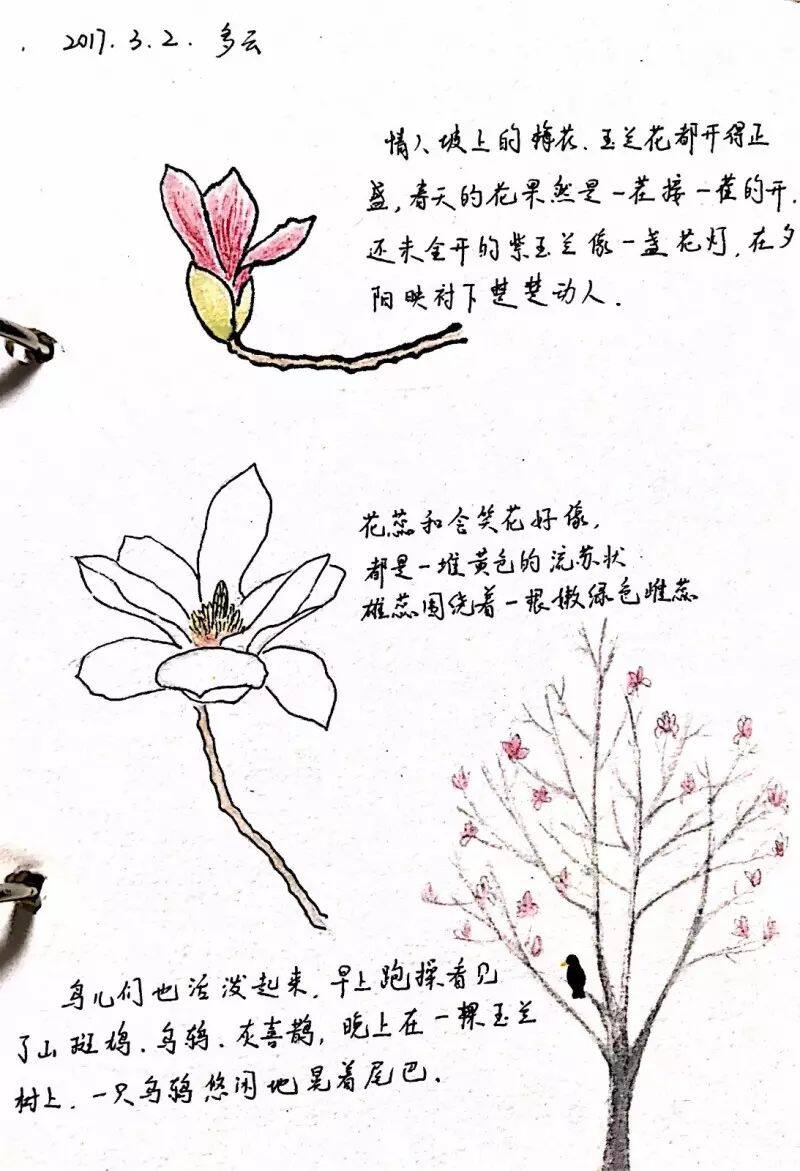 2017.3.2. 多云
情人坡上的梅花、玉兰花都开得正
盛,春天的花果然是一茬接一茬的开.
还未全开的紫玉兰像一盏花灯,在夕
阳映衬下楚楚动人.
花蕊和含笑花好像,
都是一堆黄色的流苏状
雄蕊围绕着一根嫩绿色雌蕊
鸟儿们也活泼起来,早上跑操看见
了山斑鸠、乌鸫、灰喜鹊,晚上在一棵玉兰
树上,一只乌鸫悠闲地晃着尾巴.